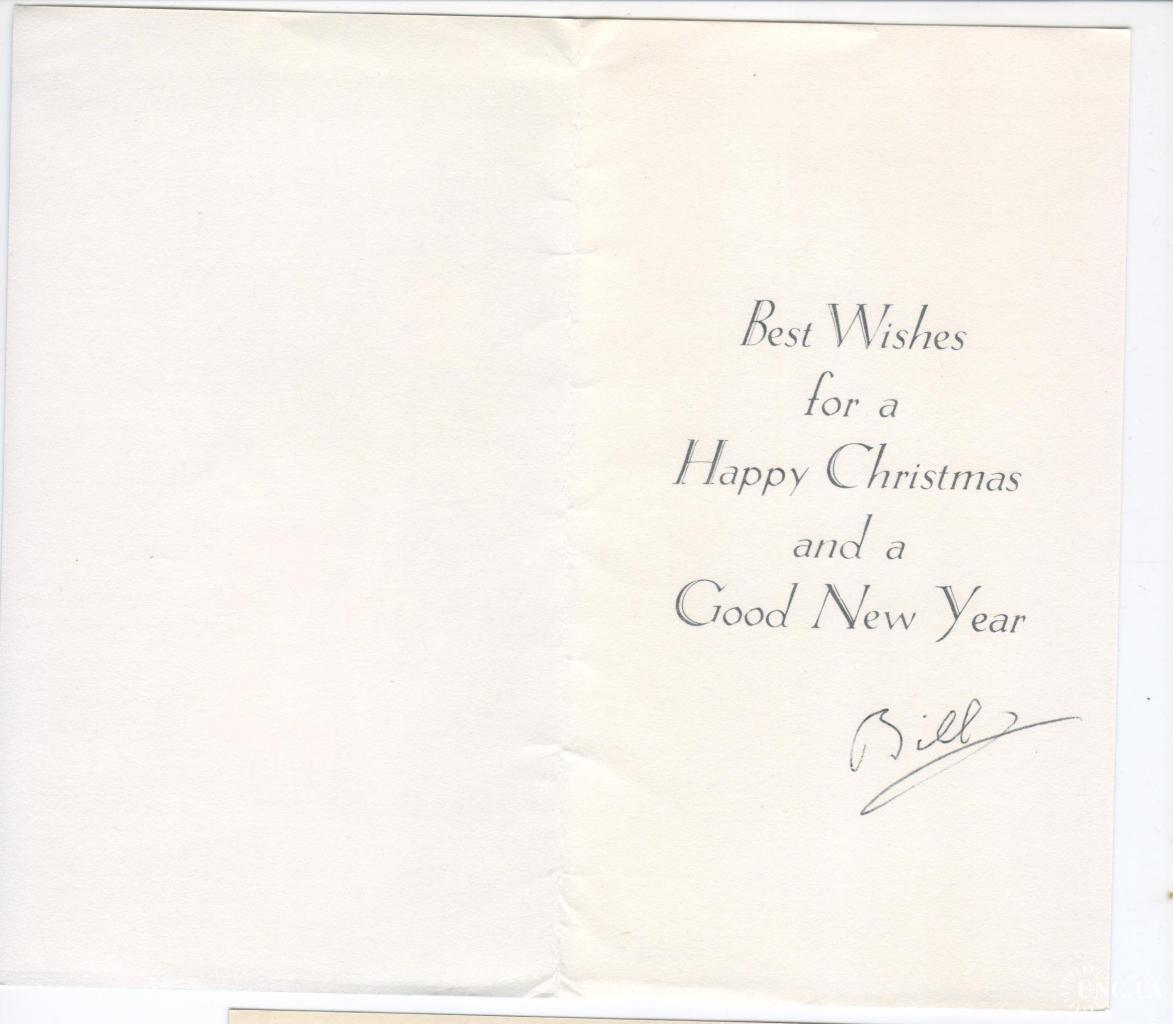 Best Wishes
for a
Happy Christmas
and a
Good New Year
Bill
UNC.UA